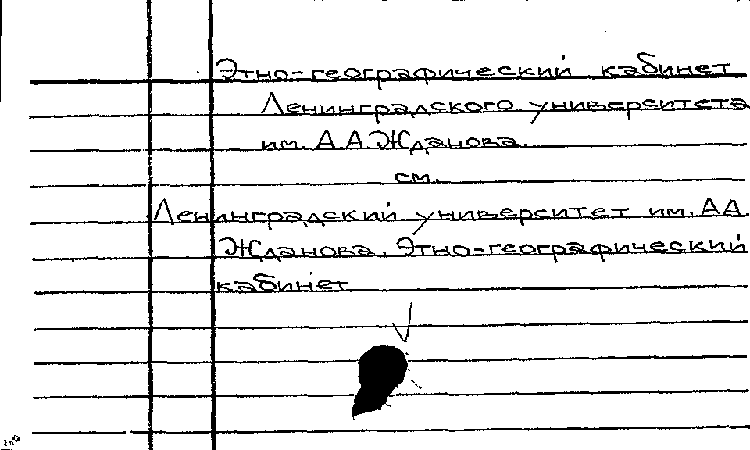 Этно-географический кабинет
Ленинградского университета
им. А.А.Жданова.
см.
Ленинградский университет им. АА.
Жданова. Этно-географический
кабинет